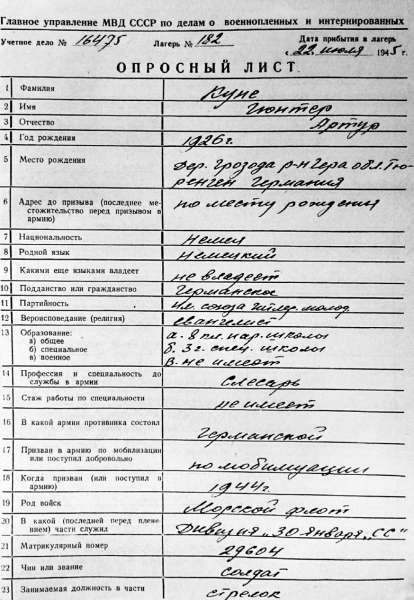 Главное управление МВД СССР по делам о военнопленных и интернированных
Учетное дело № 16475 Лагерь № 182 Дата прибытия в лагерь
с 22 июля 1945 г.
ОПРОСНЫЙ ЛИСТ
1 Фамилия Куне
2 Имя Гюнтер
3 Отчество Артур
4 Год рождения 1926 г.
5 Место рождения дер. грозода р-н Гера обл. Тю-
ренген Германия
6 Адрес до призыва (последнее ме- по месту рождения
стожительство перед призывом в
армию)
7 Национальность немец
8 Родной язык немецкий
9 Какими еще языками владеет не владеет
10 Подданство или гражданство Германское
11 Партийность чл. союза гитлер. молод.
12 Вероисповедание (религия) евангелист
13 Образование: а. 8 кл. нар. школы
а) общее б. 3 г. спец. школы
б) специальное в. не имеет
в) военное
14 Профессия и специальность до Слесарь
службы в армии
15 Стаж работы по специальности не имеет
16 В какой армии противника состоял Германской
17 Призван в армию по мобилизации по мобилизации
или поступил добровольно
18 Когда призван (или поступил в 1944 г.
армию)
19 Род войск Морской флот
20 В какой (последней перед плене- Дивизия „30 января „СС"
нием) части служил
21 Матрикулярный номер 29604
22 Чин или звание солдат
23 Занимаемая должность в части стрелок